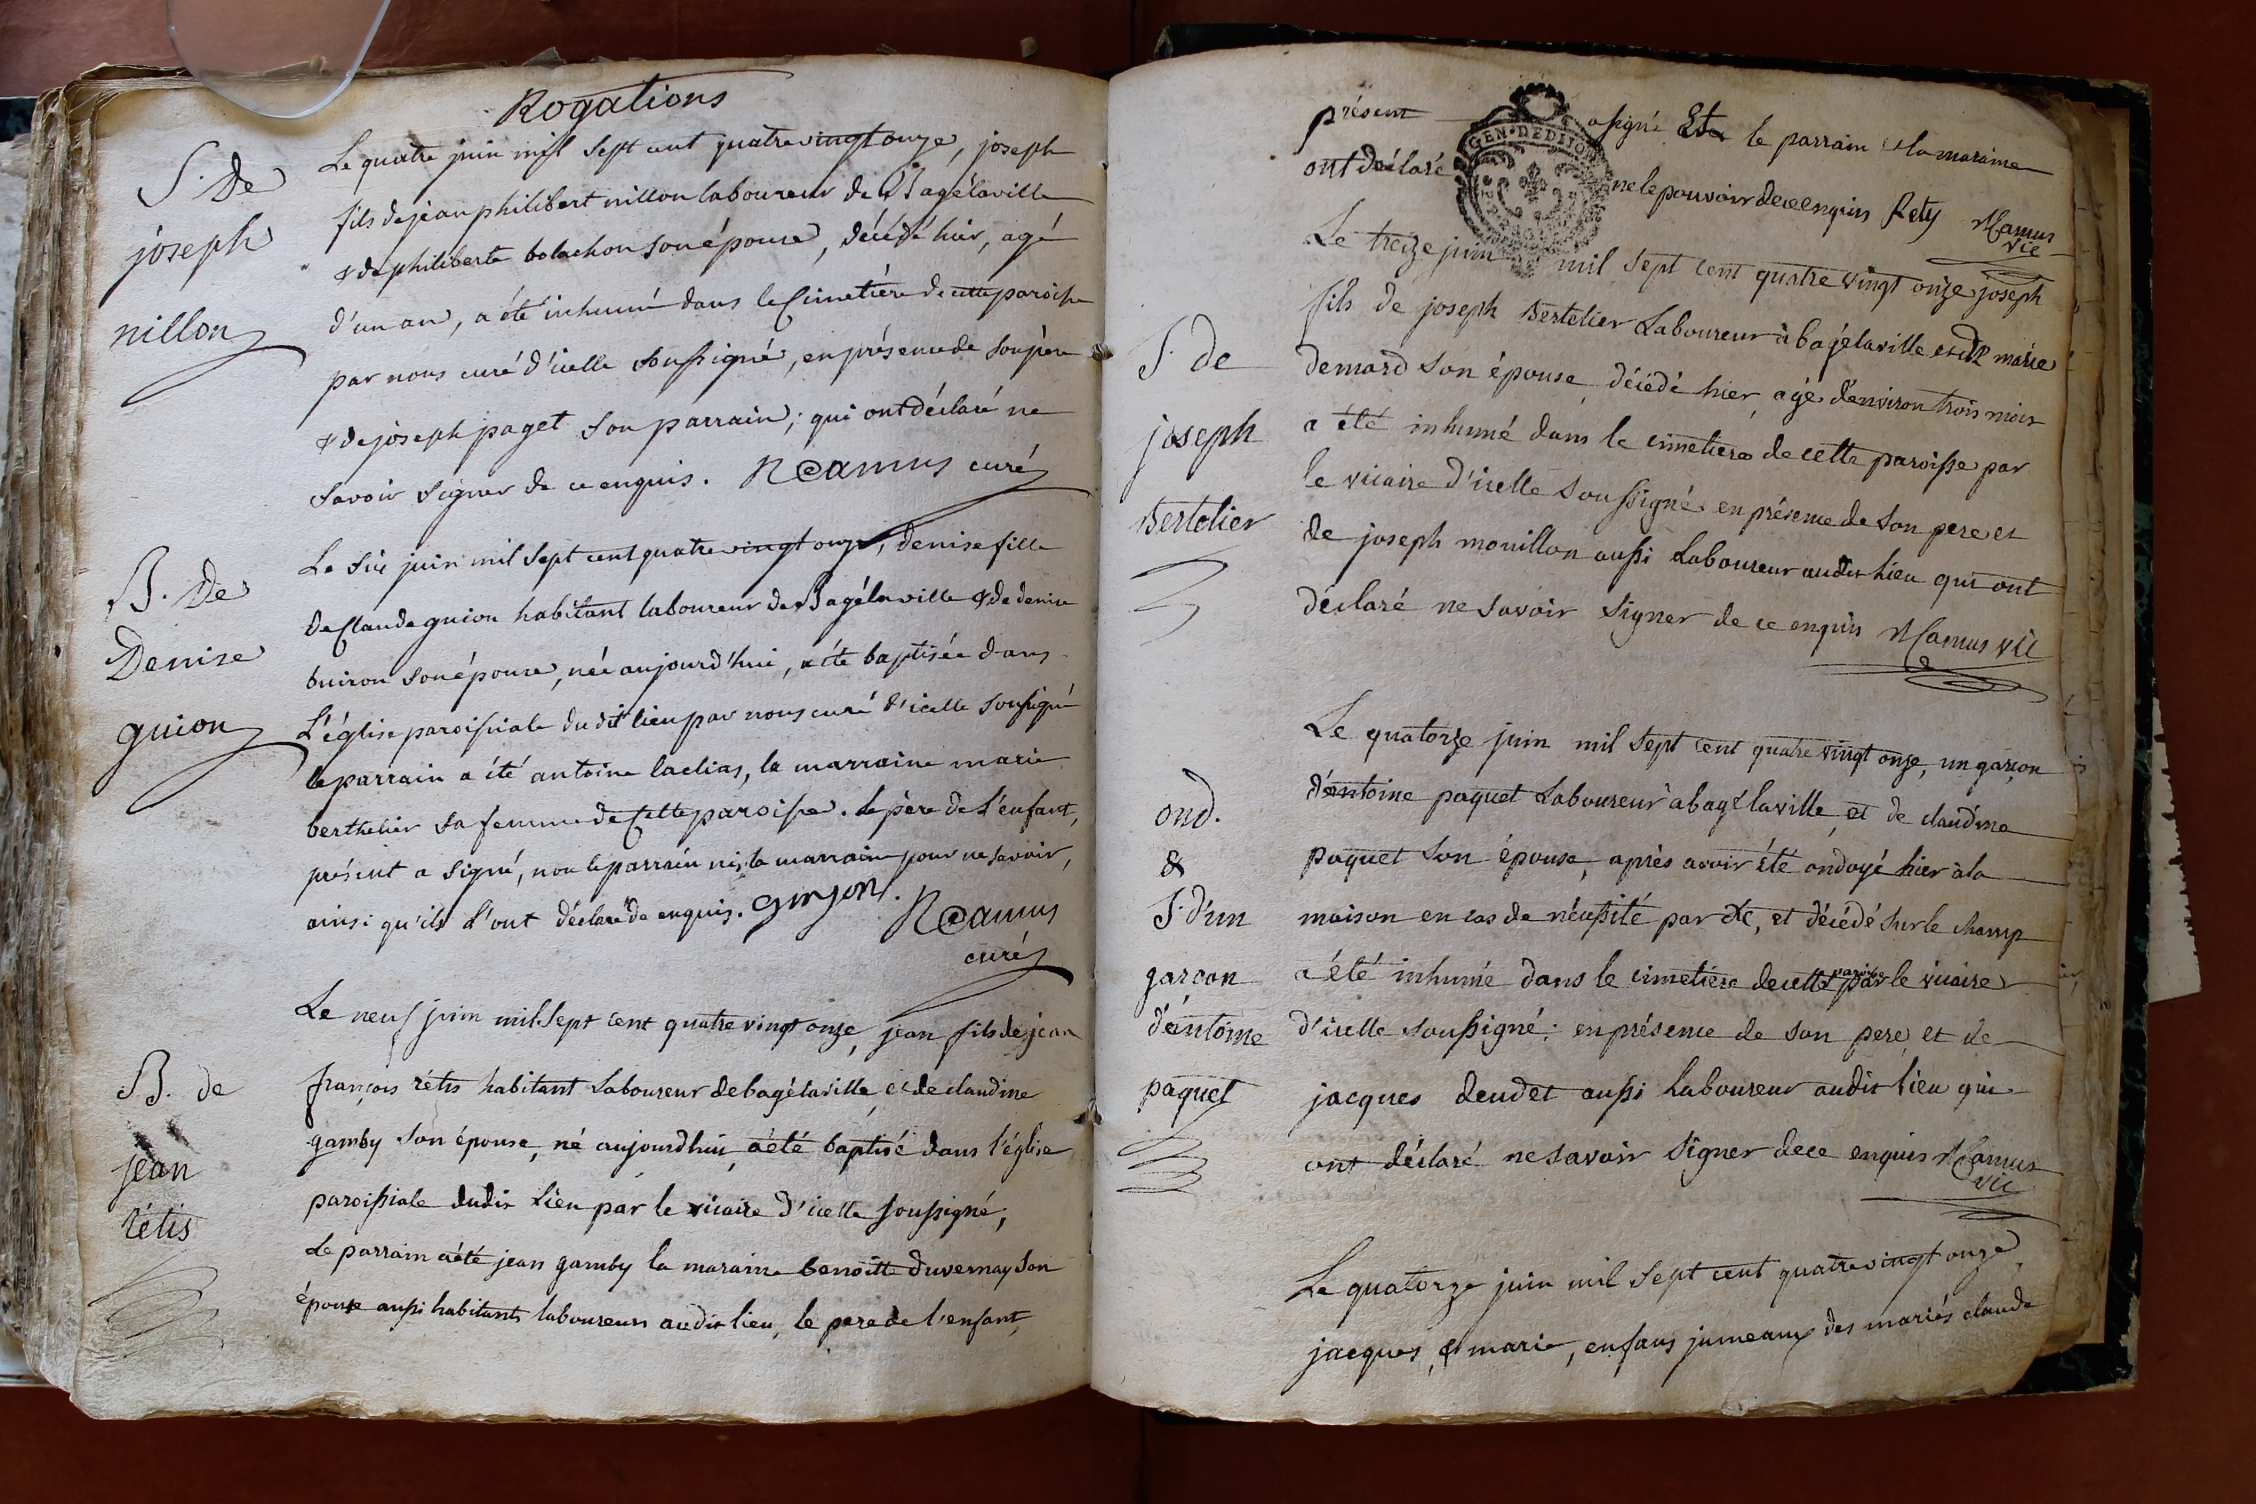 Rogations
S. De
joseph
nillon
Le quatre juin mil sept cent quatre vingt onze, joseph
fils de jean philibert nillon laboureur de Bagélaville
& de philiberte bolachon son épouse, décédé hier, agé
d'un an, a été inhumé dans le Cimetière de cette paroisse
par nous curé d'icelle soussigné, en présence de son père
& de joseph paget son parrain; qui ont déclaré ne
savoir signer de ce enquis. N Camus curé
B. De
Denise
guion
Le six juin mil sept cent quatre vingt onze, denise fille
de Claude guion habitant laboureur de Bagélaville & de denise
buiron son épouse, née aujourd'hui, a été baptisée dans
L'église paroissiale du dit lieu par nous curé d'icelle soussigné
le parrain a été antoine laclias, la marraine marie
berthelier sa femme de Cette paroisse. le père de l'enfant,
présent a signé, non le parrain ni la marraine pour ne savoir,
ainsi qu'ils l'ont déclaré de enquis. N Camus
curé
B. de
jean
rétis
Le neuf juin mil sept cent quatre vingt onze, jean fils de jean
françois rétis habitant Laboureur de bagélaville, et de claudine
gamby son épouse, né aujourdhui, a été baptisé dans l'église
paroissiale dudit Lieu par le vicaire d'icelle soussigné;
Le parrain a été jean gamby la maraine benoitte duvernay son
épouse aussi habitants laboureurs audit lieu, le pere de l'enfant,
présent a signé Et le parrain et la maraine
ont déclaré ne le pouvoir de ce enquis Rety N Camus
vic
S. de
joseph
Bertelier
Le treize juin mil sept cent quatre vingt onze joseph
fils de joseph Bertelier Laboureur à bagélaville et de marie
demard son épouse, décédé hier, agé d'environ trois mois
a été inhumé dans le cimetiere de cette paroisse par
le vicaire d'icelle soussigné en présence de son pere et
de joseph monillon aussi Laboureur audit Lieu qui ont
déclaré ne savoir signer de ce enquis N Camus vic
ond.
&
S. d'un
garçon
d'antoine
paquet
Le quatorze juin mil sept cent quatre vingt onze, un garçon
d'antoine paquet Laboureur a bagélaville, et de claudine
paquet son épouse, après avoir été ondoyé hier à la
maison en cas de nécessité par &c, et décédé sur le champ
a été inhumé dans le cimetiere de cette paroisse par le vicaire
d'icelle soussigné; en présence de son pere, et de
jacques deudet aussi Laboureur audit Lieu qui
ont déclaré ne savoir signer de ce enquis N Camus
vic
Le quatorze juin mil sept cent quatre vingt onze,
jacques, & marie, enfans jumeaux des mariés claude